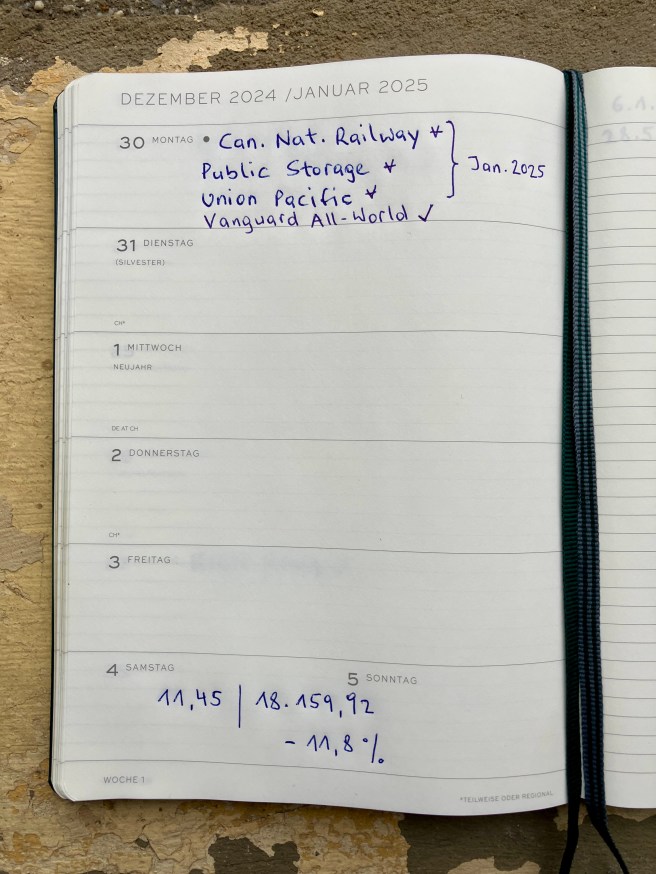 DEZEMBER 2024 / JANUAR 2025
30 MONTAG • Can. Nat. Railway * } Jan. 2025
Public Storage *
Union Pacific *
Vanguard All-World ✓
31 DIENSTAG
(SILVESTER)
CH*
1 MITTWOCH
NEUJAHR
DE AT CH
2 DONNERSTAG
CH*
3 FREITAG
4 SAMSTAG
5 SONNTAG
11,45 | 18.159,92
- 11,8 %
WOCHE 1
*TEILWEISE ODER REGIONAL
6.1.